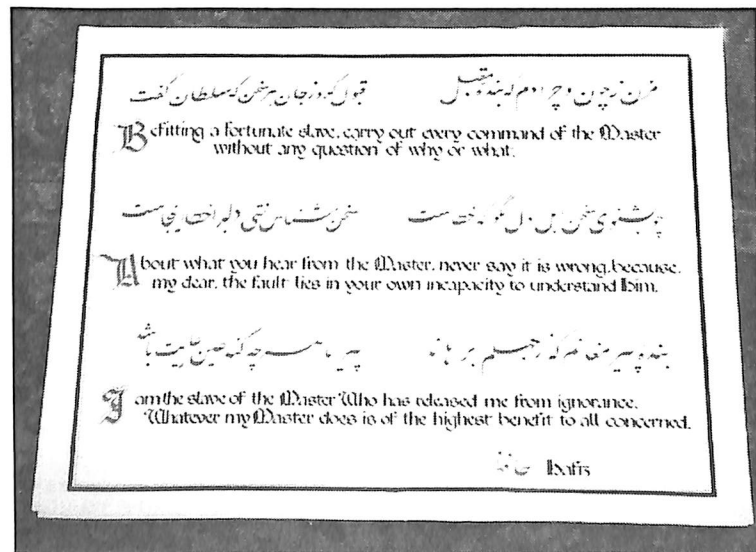 مزن ز چون و چرا دم که بنده مقبل قبول کرد ز جان هر سخن که سلطان گفت
Befitting a fortunate slave, carry out every command of the Master
without any question of why or what.
چو بشنوی سخن اهل دل مگو که خطاست سخن شناس نئی دلبرا خطا اینجاست
About what you hear from the Master, never say it is wrong, because,
my dear, the fault lies in your own incapacity to understand Him.
بنده پیر مغانم که ز جهلم برهاند پیر ما هر چه کند عین عنایت باشد
I am the slave of the Master Who has released me from ignorance.
Whatever my Master does is of the highest benefit to all concerned.
حافظ Hafiz